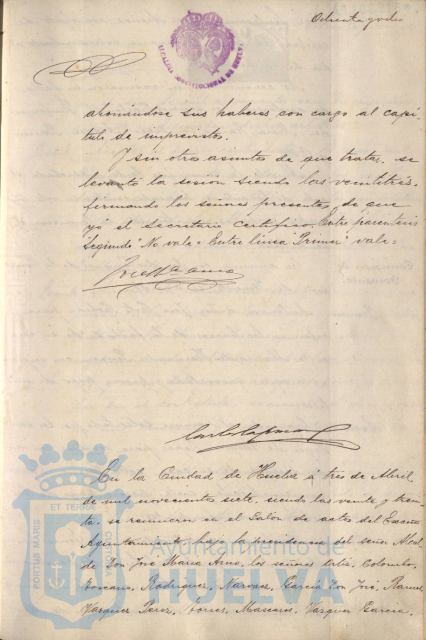 Ochenta y ocho
ALCALDIA CONSTITUCIONAL DE HUELVA
abonándose sus haberes con cargo al capí-
tulo de imprevistos.
Y sin otros asuntos de que tratar, se
levantó la sesión siendo las veintitres
firmando los señores presentes, de que
yó el Secretario certifico. Entre parentesis
"Segundo" No vale = Entre línea "Primer" vale =
En la Ciudad de Huelva á tres de Abril
de mil novecientos siete, siendo las veinte y trein-
ta, se reunieron en el Salón de actos del Excmo
Ayuntamiento, bajo la presidencia del señor Alcal-
de Don José María Amo, los señores Colombo,
Toscano, Rodriguez, Narvaez, García Don José, Ramos,
Vázquez Perez, Torres, Mascaros, Vázquez García,
PORTUS MARIS ET TERRAE CUSTODIA
Ayuntamiento de
HUELVA